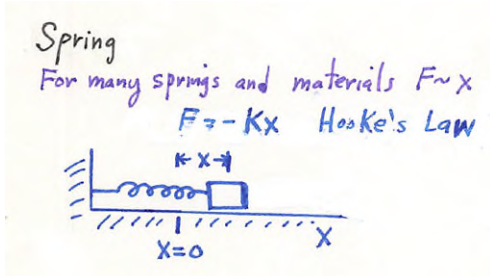 Spring
For many springs and materials F~x
F = -Kx Hooke's Law
x
x
x=0